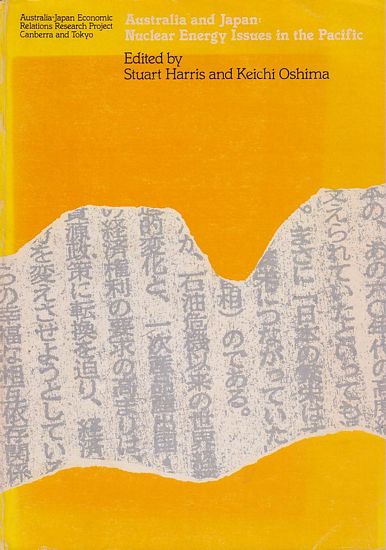 Australia-Japan Economic
Relations Research Project
Canberra and Tokyo
Australia and Japan:
Nuclear Energy Issues in the Pacific
Edited by
Stuart Harris and Keichi Oshima
支えられていたといっても
。まさに一日本の未来は
につながっていた
相）のである。
石油危機以来の世界経済
的変化と、一次
の経済権利の要求の高まりは、
資源政策に転換を迫り、経済
を変えさせようとしてい